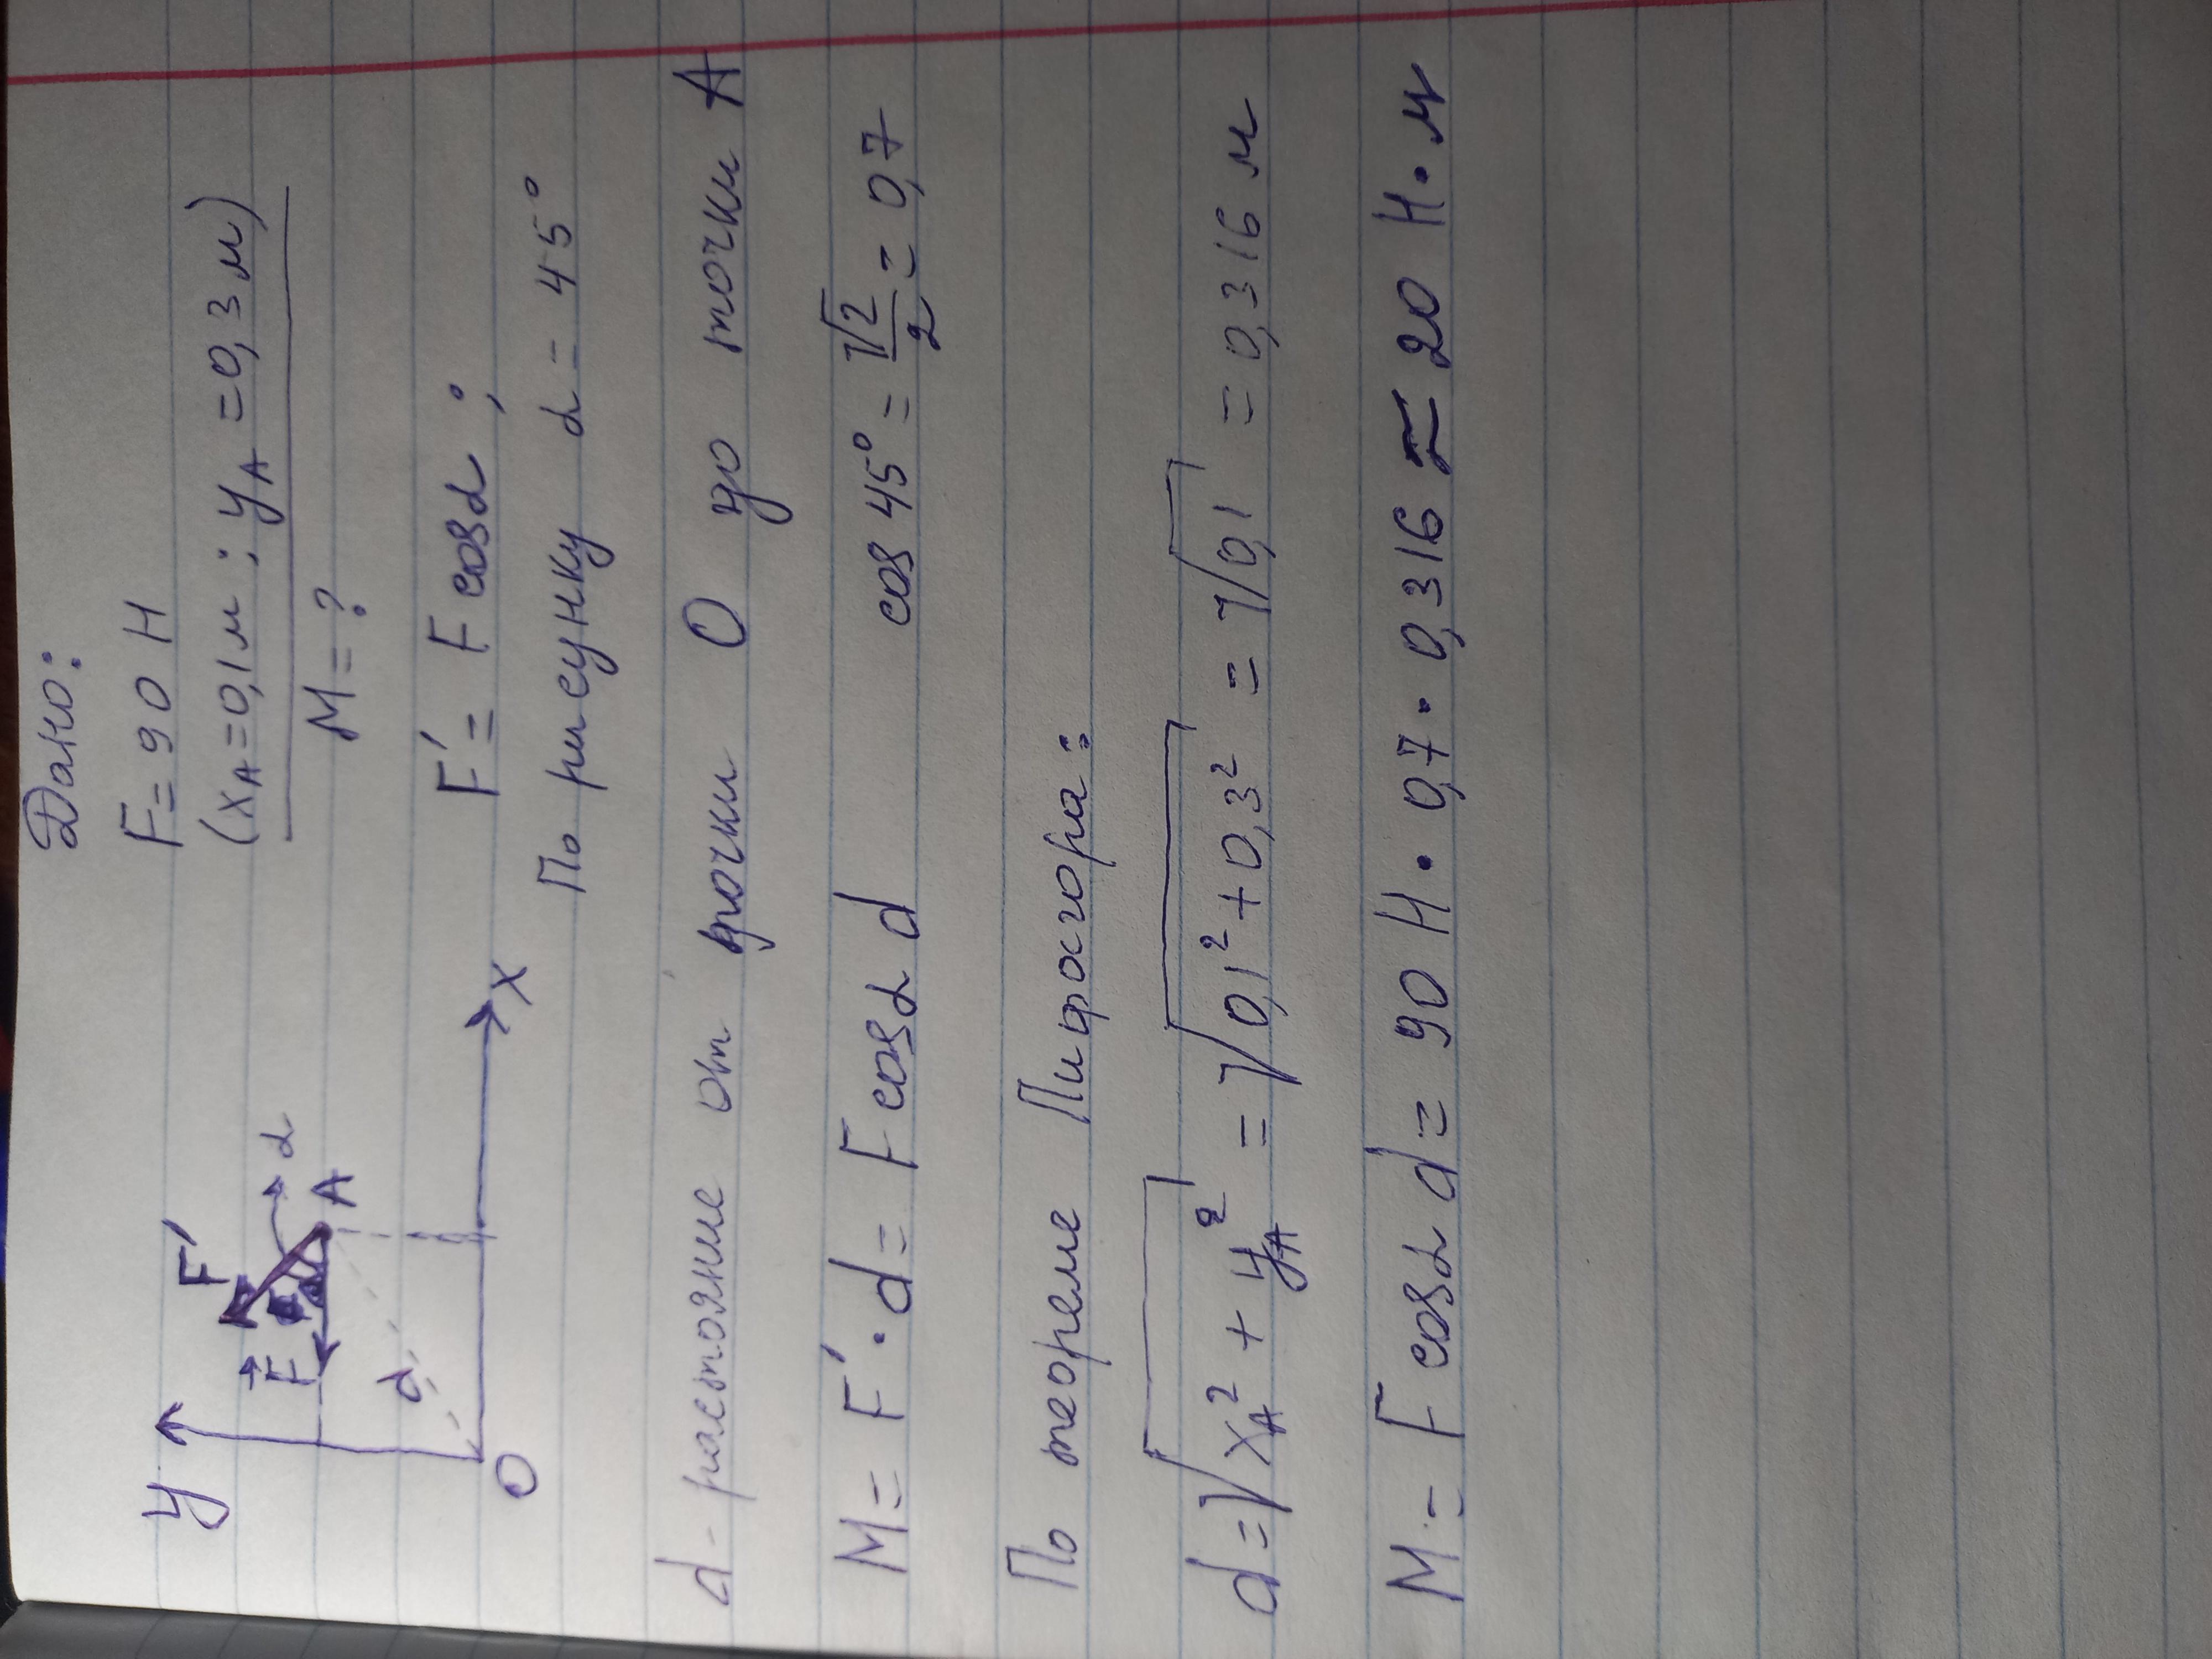 Дано:
F = 90 Н
(xA = 0,1 м ; yA = 0,3 м)
M = ?
y
F'
F
α
A
d
O
x
F' = F cos α ;
По рисунку α = 45°
d - растояние от точки O до точки A
M = F' · d = F cos α d cos 45° = √2/2 = 0,7
По теореме Пифагора:
d = √xA² + yA² = √0,1² + 0,3² = √0,1 = 0,316 м
M = F cos α d = 90 Н · 0,7 · 0,316 ≈ 20 Н · м